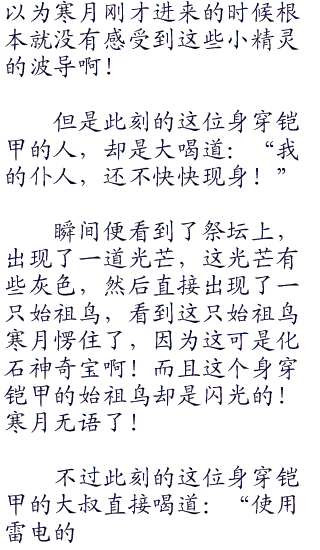 以为寒月刚才进来的时候根
本就没有感受到这些小精灵
的波导啊！
但是此刻的这位身穿铠
甲的人，却是大喝道：“我
的仆人，还不快快现身！”
瞬间便看到了祭坛上，
出现了一道光芒，这光芒有
些灰色，然后直接出现了一
只始祖鸟，看到这只始祖鸟
寒月愣住了，因为这可是化
石神奇宝啊！而且这个身穿
铠甲的始祖鸟却是闪光的！
寒月无语了！
不过此刻的这位身穿铠
甲的大叔直接喝道：“使用
雷电的